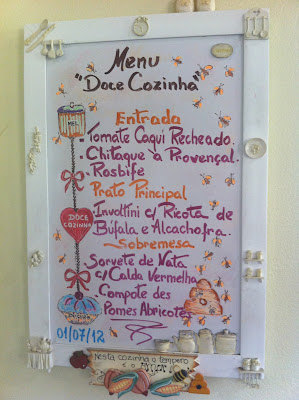 Menu
"Doce Cozinha"
Entrada
. Tomate Caqui Recheado.
. Chitaque à Provençal.
. Rosbife
Prato Principal
Involtini c/ Ricota de
Búfala e Alcachofra.
Sobremesa
Sorvete de Nata
c/ Calda Vermelha
Compote des
Pomes Abricotes
MEL
DOCE
COZINHA
01/07/12
Nesta cozinha o tempero
é o